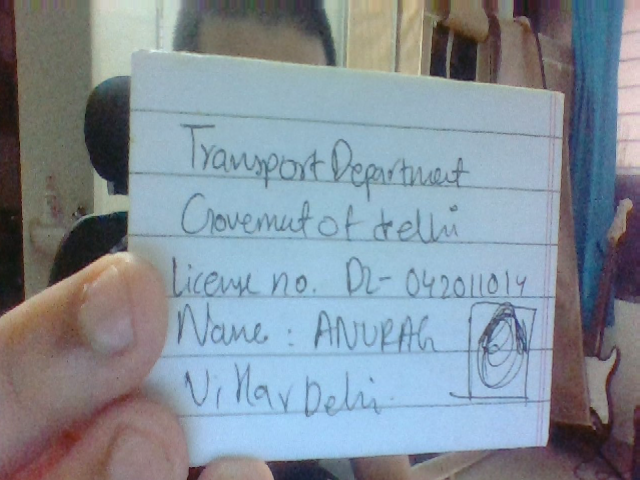 Transport Department
Government of delhi
License no. DL-042011014
Name : ANURAG
Delhi